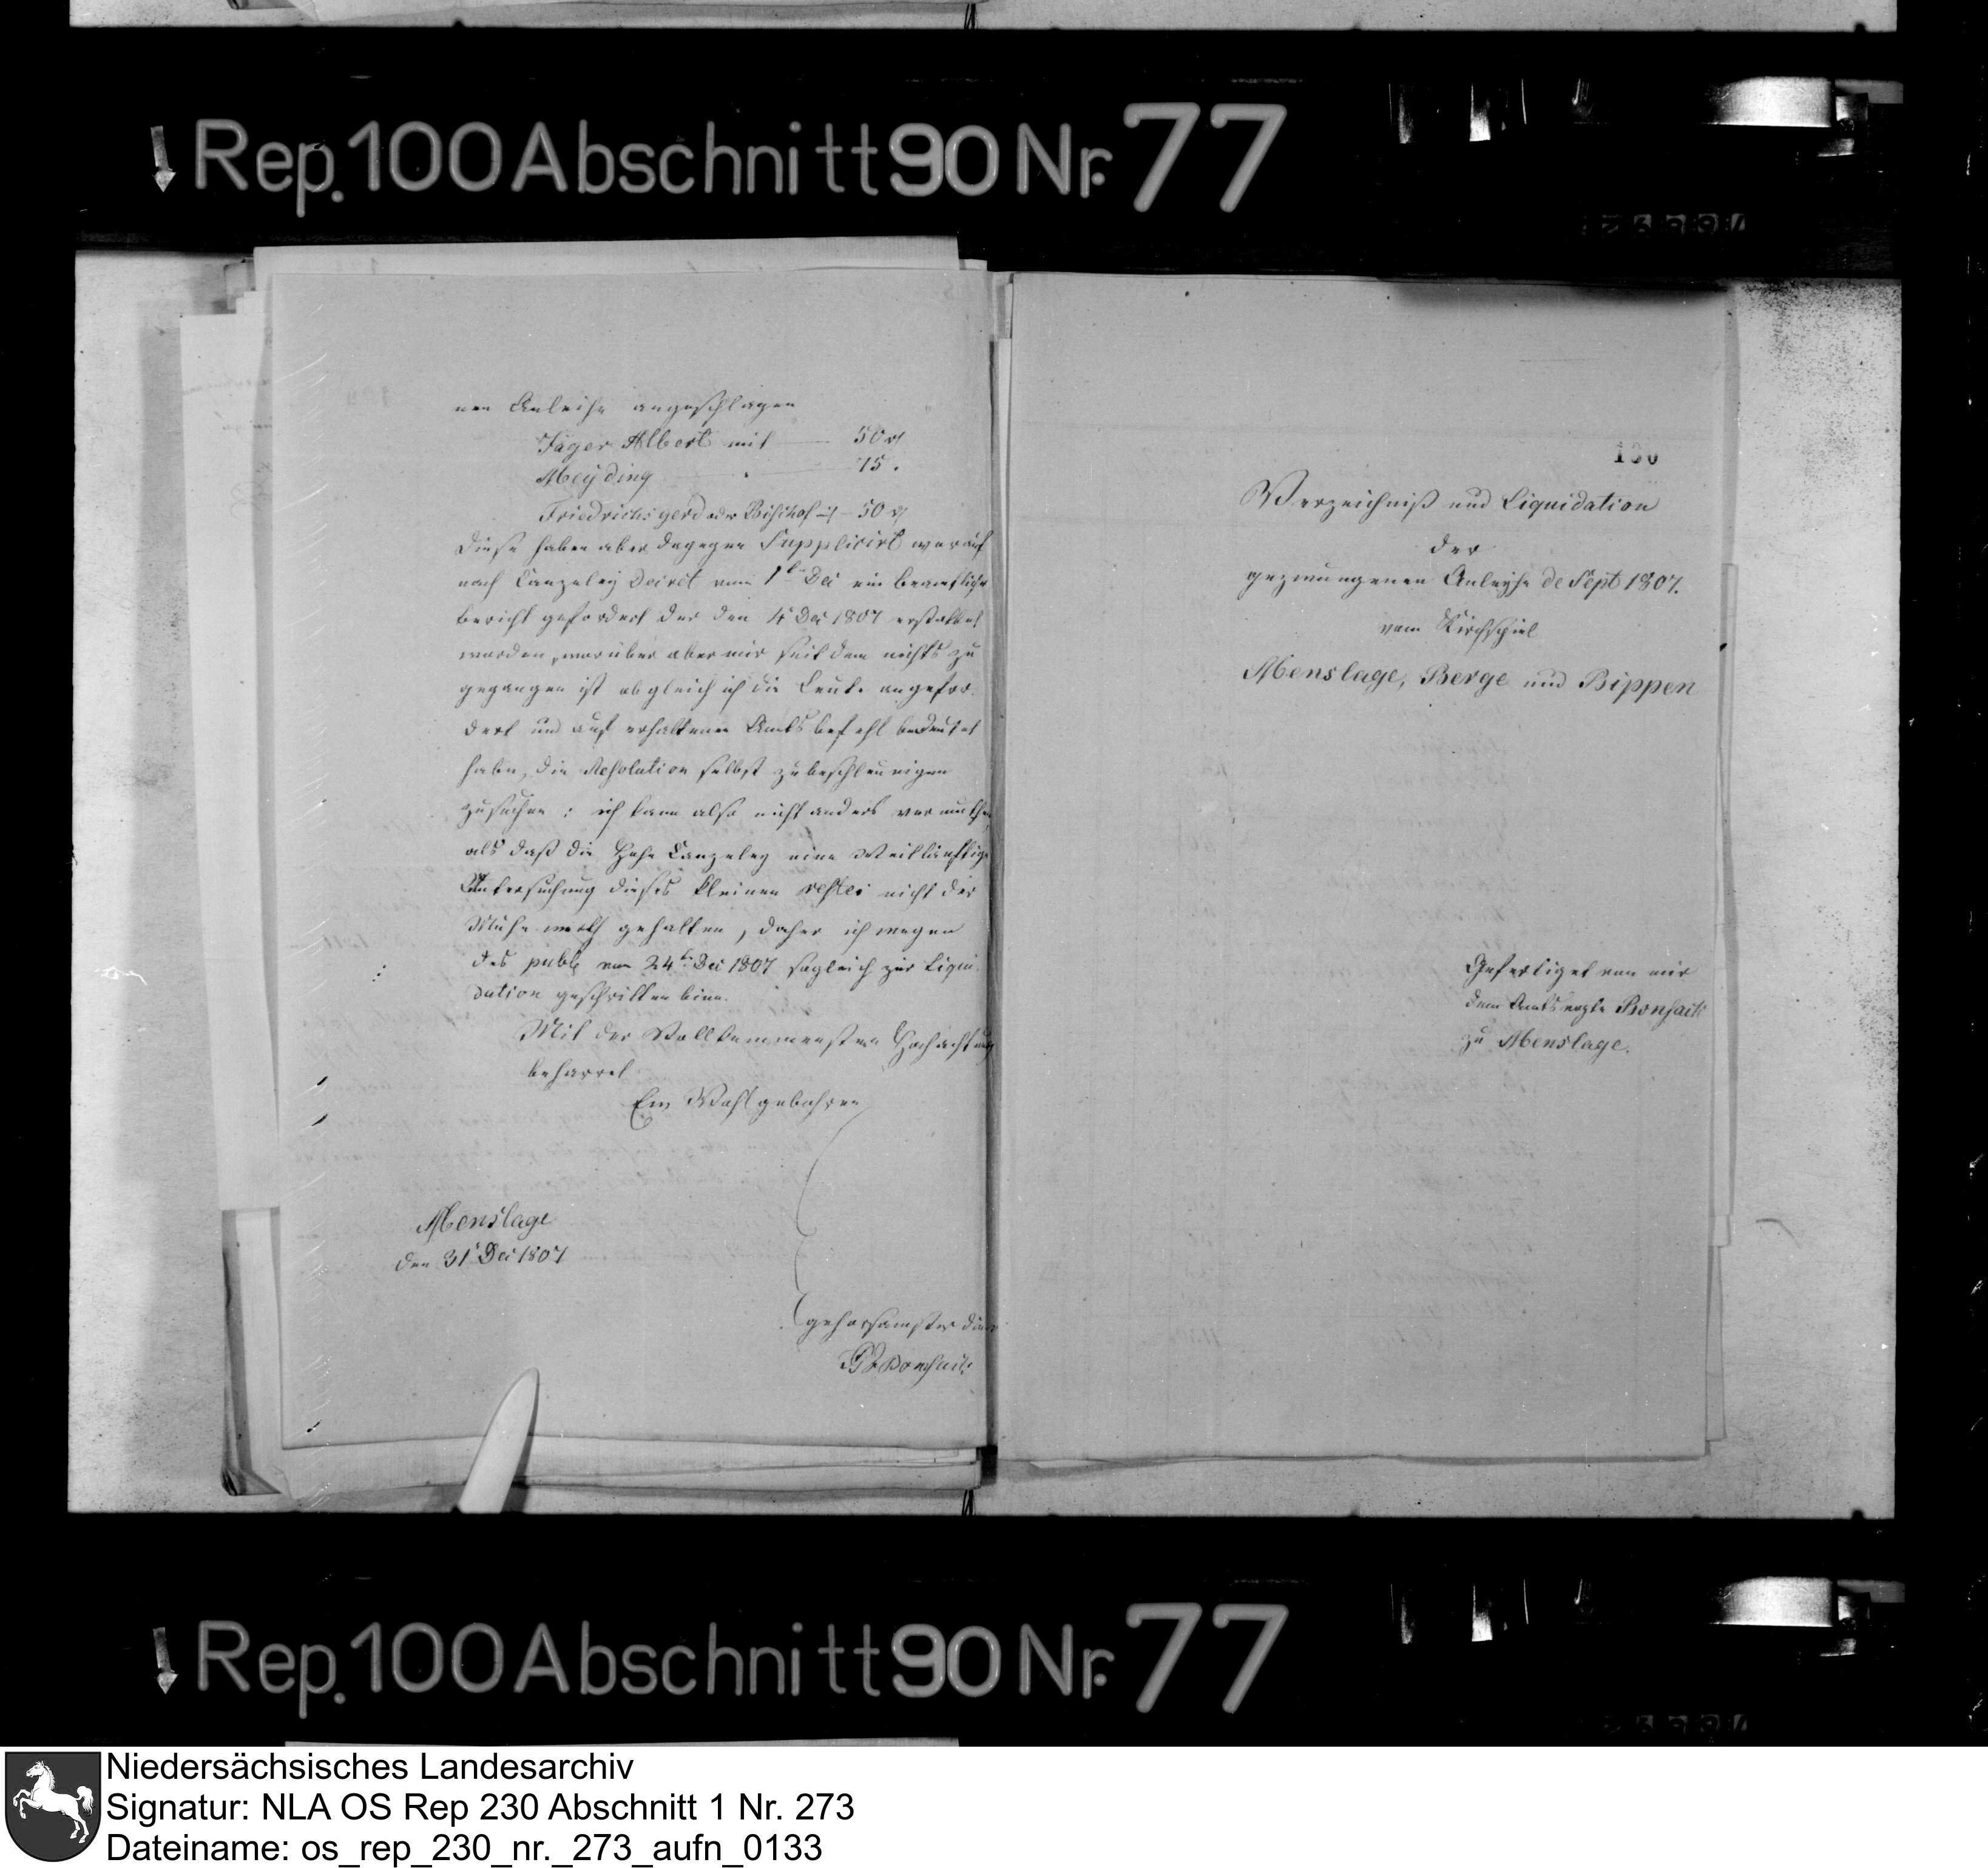 Rep. 100 Abschnitt 90 Nr. 77
nen Anleihe angeschlagen
Jäger Albert mit — 50 rl
Meyding — 75 .
Friedrichs gerd oder Bischof mit — 50 rl
diese haben aber dagegen Supplicirt worauf
nach Canzeley Decret vom 1ten Dec ein beamtlicher
bericht gefordert der den 4t Dec 1807 erstattet
worden, worüber aber mir seit dem nichts zu
gegangen ist obgleich ich die Leute angefor
dert und auf erhaltenen Amts befehl bedeutet
habe, die Resolution selbst zu beschleunigen
zusuchen : ich kann also nicht anders vermuthen
als daß die Hohe Canzeley eine Weitläuftige
Untersuchung dieses kleinen restes nicht der
Mühe werth gehalten, daher ich wegen
des publ vom 24ten Dec 1807 sogleich zur Liqui
dation geschritten bin.
Mit der Vollkommensten Hochachtung
beharret
Ew Wohlgebohren
Menslage
den 31t Dec 1807
gehorsamster
Bonsack
130
Verzeichniß und Liquidation
der
gezwungenen Anleyhe de Sept 1807.
vom Kirchspiel
Menslage, Berge und Bippen
Gefertiget von mir
dem Amtsvogte Bonsack
zu Menslage.
Rep. 100 Abschnitt 90 Nr. 77
Niedersächsisches Landesarchiv
Signatur: NLA OS Rep 230 Abschnitt 1 Nr. 273
Dateiname: os_rep_230_nr._273_aufn_0133